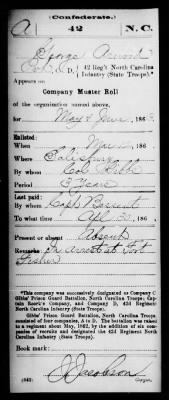 (Confederate.)
A 42 N.C.
George
Co. D, 42 Reg't North Carolina
Infantry (State Troops).*
Appears on
Company Muster Roll
of the organization named above,
for May & June, 186
Enlisted:
When , 186
Where Salisbury
By whom Col. Gibbs
Period 3 Years
Last paid:
By whom Capt.
To what time Apl 30, 186
Present or absent Absent
Remarks: In arrest at Fort
Fisher
*This company was successively designated as Company C
Gibbs' Prison Guard Battalion, North Carolina Troops; Cap-
tain Company, and Company D, 42d Regiment
North Carolina Infantry (State Troops).
Gibbs' Prison Guard Battalion, North Carolina Troops,
consisted of four companies, A to D. The battalion was raised
to a regiment about May, 1862, by the addition of six com-
panies of recruits and designated the 42d Regiment North
Carolina Infantry (State Troops).
Book mark:
(642) J. Jacobson
Copyist.